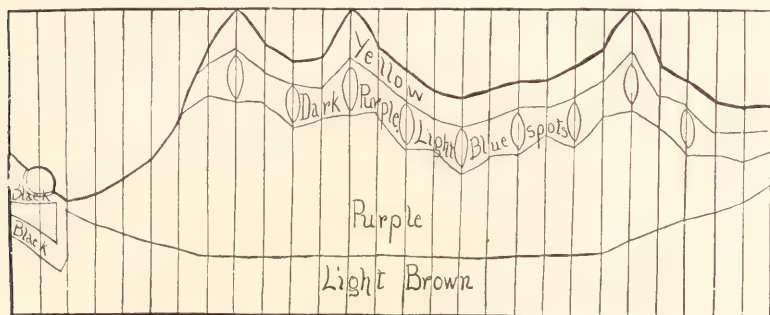 Yellow
Dark Purple Light Blue spots
Black
Black
Purple
Light Brown